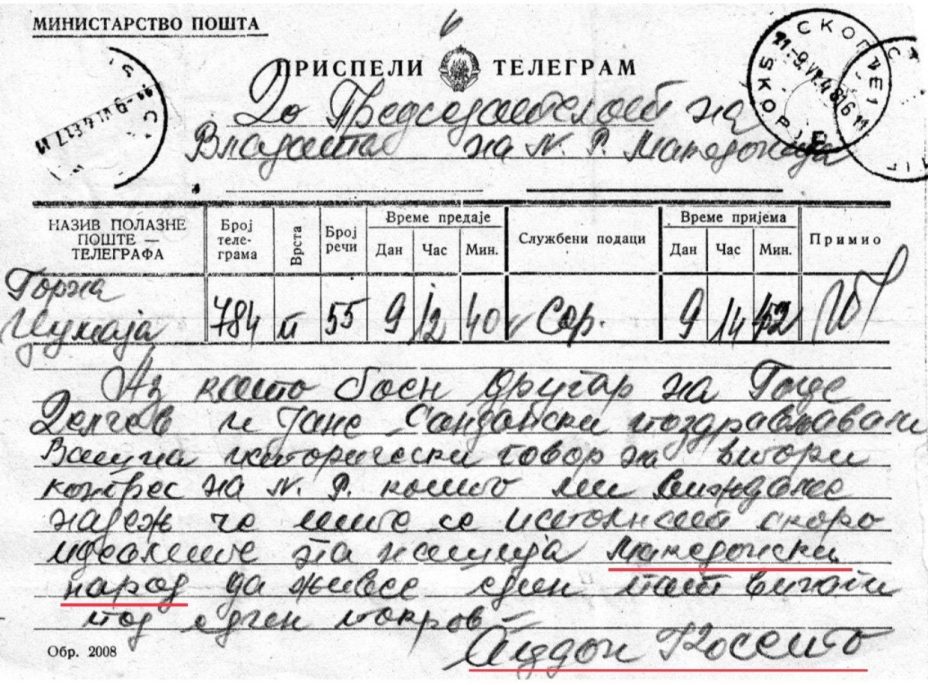 МИНИСТАРСТВО ПОШТА
ПРИСПЕЛИ ТЕЛЕГРАМ
До Председателот на
Владата на Н. Р. Македонија
НАЗИВ ПОЛАЗНЕ ПОШТЕ — ТЕЛЕГРАФА
Број теле-грама
Врста
Број речи
Време предаје
Дан Час Мин.
Службени подаци
Време пријема
Дан Час Мин.
Примио
Горна
Џумаја 784 п 55 9 12 40 Сор. 9 14 42
Аз като боен другар на Гоце
Делчев и Јане Сандански поздравлавам
Вашиа исторически говор на втори
конгрес на Н. Ф. којто ми
надеж че ште се скоро
идеалите на нашија македонски
народ да живее един пат
под един покров —
Андон Косето
Обр. 2008